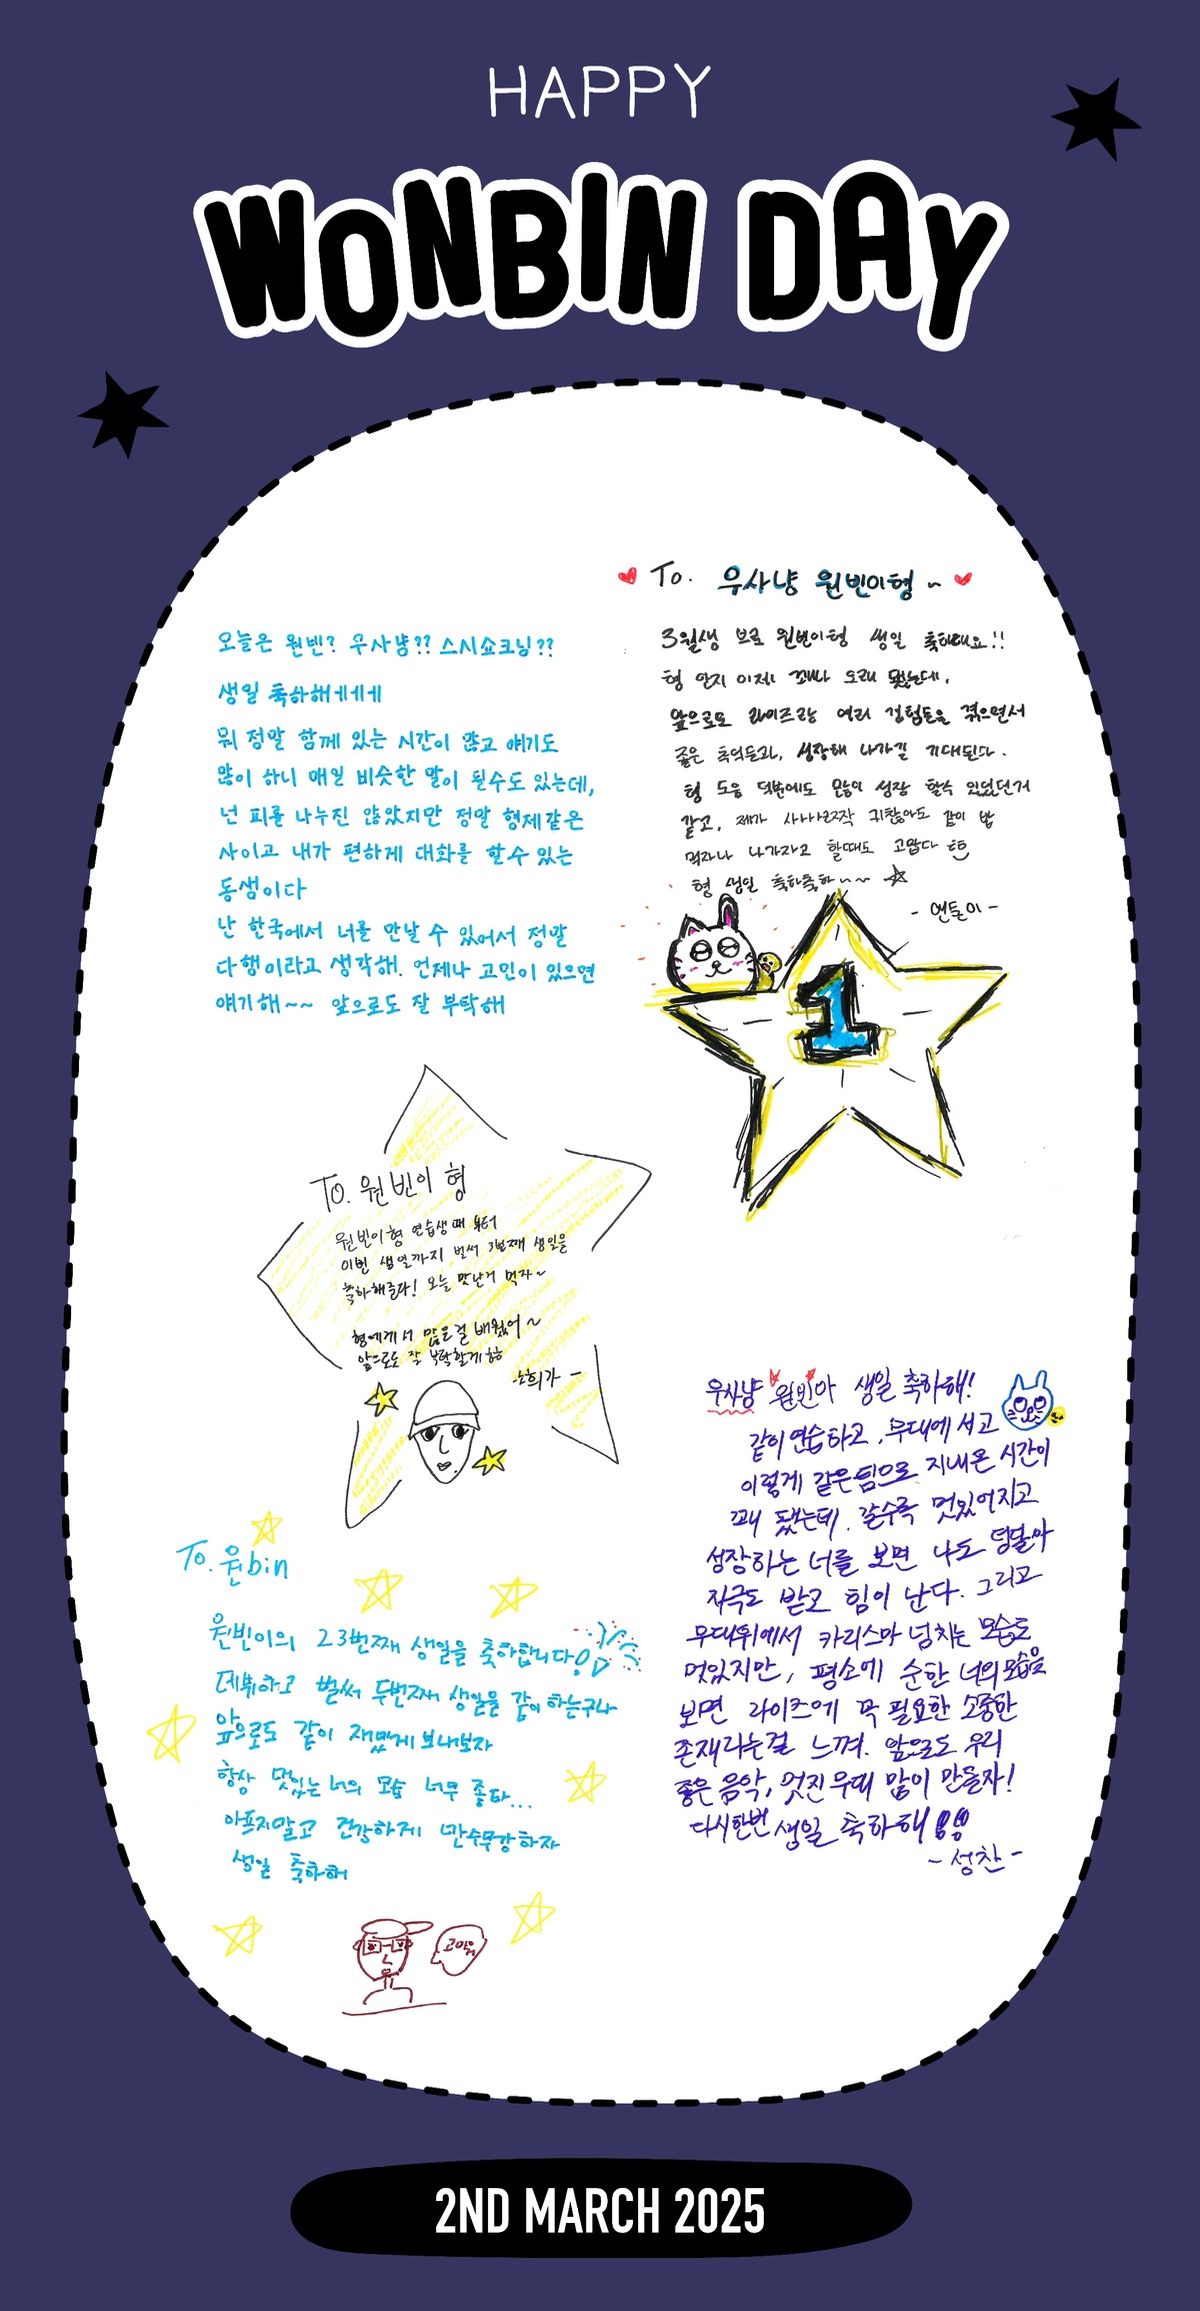 HAPPY
WONBIN DAY
오늘은 원빈? 우사냥?? 스시쇼크님??
생일 축하해ㅔㅔㅔ
뭐 정말 함께 있는 시간이 많고 얘기도
많이 하니 매일 비슷한 말이 될수도 있는데,
넌 피를 나누진 않았지만 정말 형제같은
사이고 내가 편하게 대화를 할수 있는
동생이다
난 한국에서 너를 만날 수 있어서 정말
다행이라고 생각해. 언제나 고민이 있으면
얘기해~~ 앞으로도 잘 부탁해
To. 우사냥 원빈이형~
3월생 브로 원빈이형 생일 축하해요!!
형 안지 이제 꽤나 오래 됐는데,
앞으로도 라이즈로 여러 경험들을 겪으면서
좋은 추억들과, 성장해 나가길 기대된다.
형 도움 덕분에도 많이 성장 할수 있었던거
같고, 제가 귀찮아도 같이 밥
먹자나 나가자고 할때도 고맙다
형 생일 축하축하~~~
- 앤톤이 -
1
To. 원빈이 형
원빈이형 연습생때 부터
이번 생일까지 벌써 3번째 생일을
축하해준다! 오늘 맛난거 먹자~
형에게서 많은걸 배웠어~
앞으로도 잘 부탁할게
-소희가-
To. 원bin
원빈이의 23번째 생일을 축하합니다!
데뷔하고 벌써 두번째 생일을 같이 하는구나
앞으로도 같이 재밌게 보내보자
항상 멋있는 너의 모습 너무 좋다...
아프지말고 건강하게 만수무강하자
생일 축하해
고마워
우사냥 원빈아 생일 축하해!
같이 연습하고, 무대에 서고
이렇게 같은 팀으로 지내온 시간이
꽤 됐는데, 갈수록 멋있어지고
성장하는 너를 보면 나도 덩달아
자극도 받고 힘이 난다. 그리고
무대위에서 카리스마 넘치는 모습도
멋있지만, 평소에 순한 너의 모습을
보면 라이즈에 꼭 필요한 소중한
존재라는걸 느껴. 앞으로도 우리
좋은 음악, 멋진 무대 많이 만들자!
다시한번 생일 축하해!!
- 성찬 -
2ND MARCH 2025